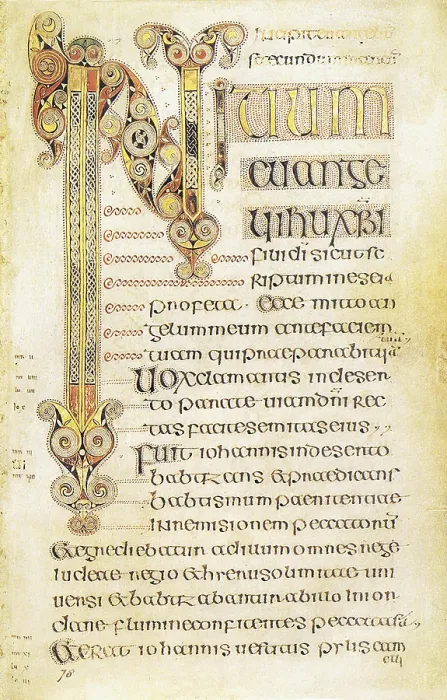 secundum
INITIUM
euange
lii ihu xpi
fili di sicut sc
riptum in esaia
profeta · Ecce mitto an
gelum meum ante faciem
tuam qui praeparabit uia
Uox clamantis in deser
to parate uiam dni rec
tas facite semitas eius
Fuit iohannis in deserto
babtizans & praedicans
babtismum paenitentiae
in remisionem peccatorum
& egrediebatur ad illum omnes
iudeae regio & hierusolimitae uni
uersi & babtizabantur ab illo in ior
dane flumine confitentes peccata sua
& erat iohannis uestitus pylis cam
eli
78